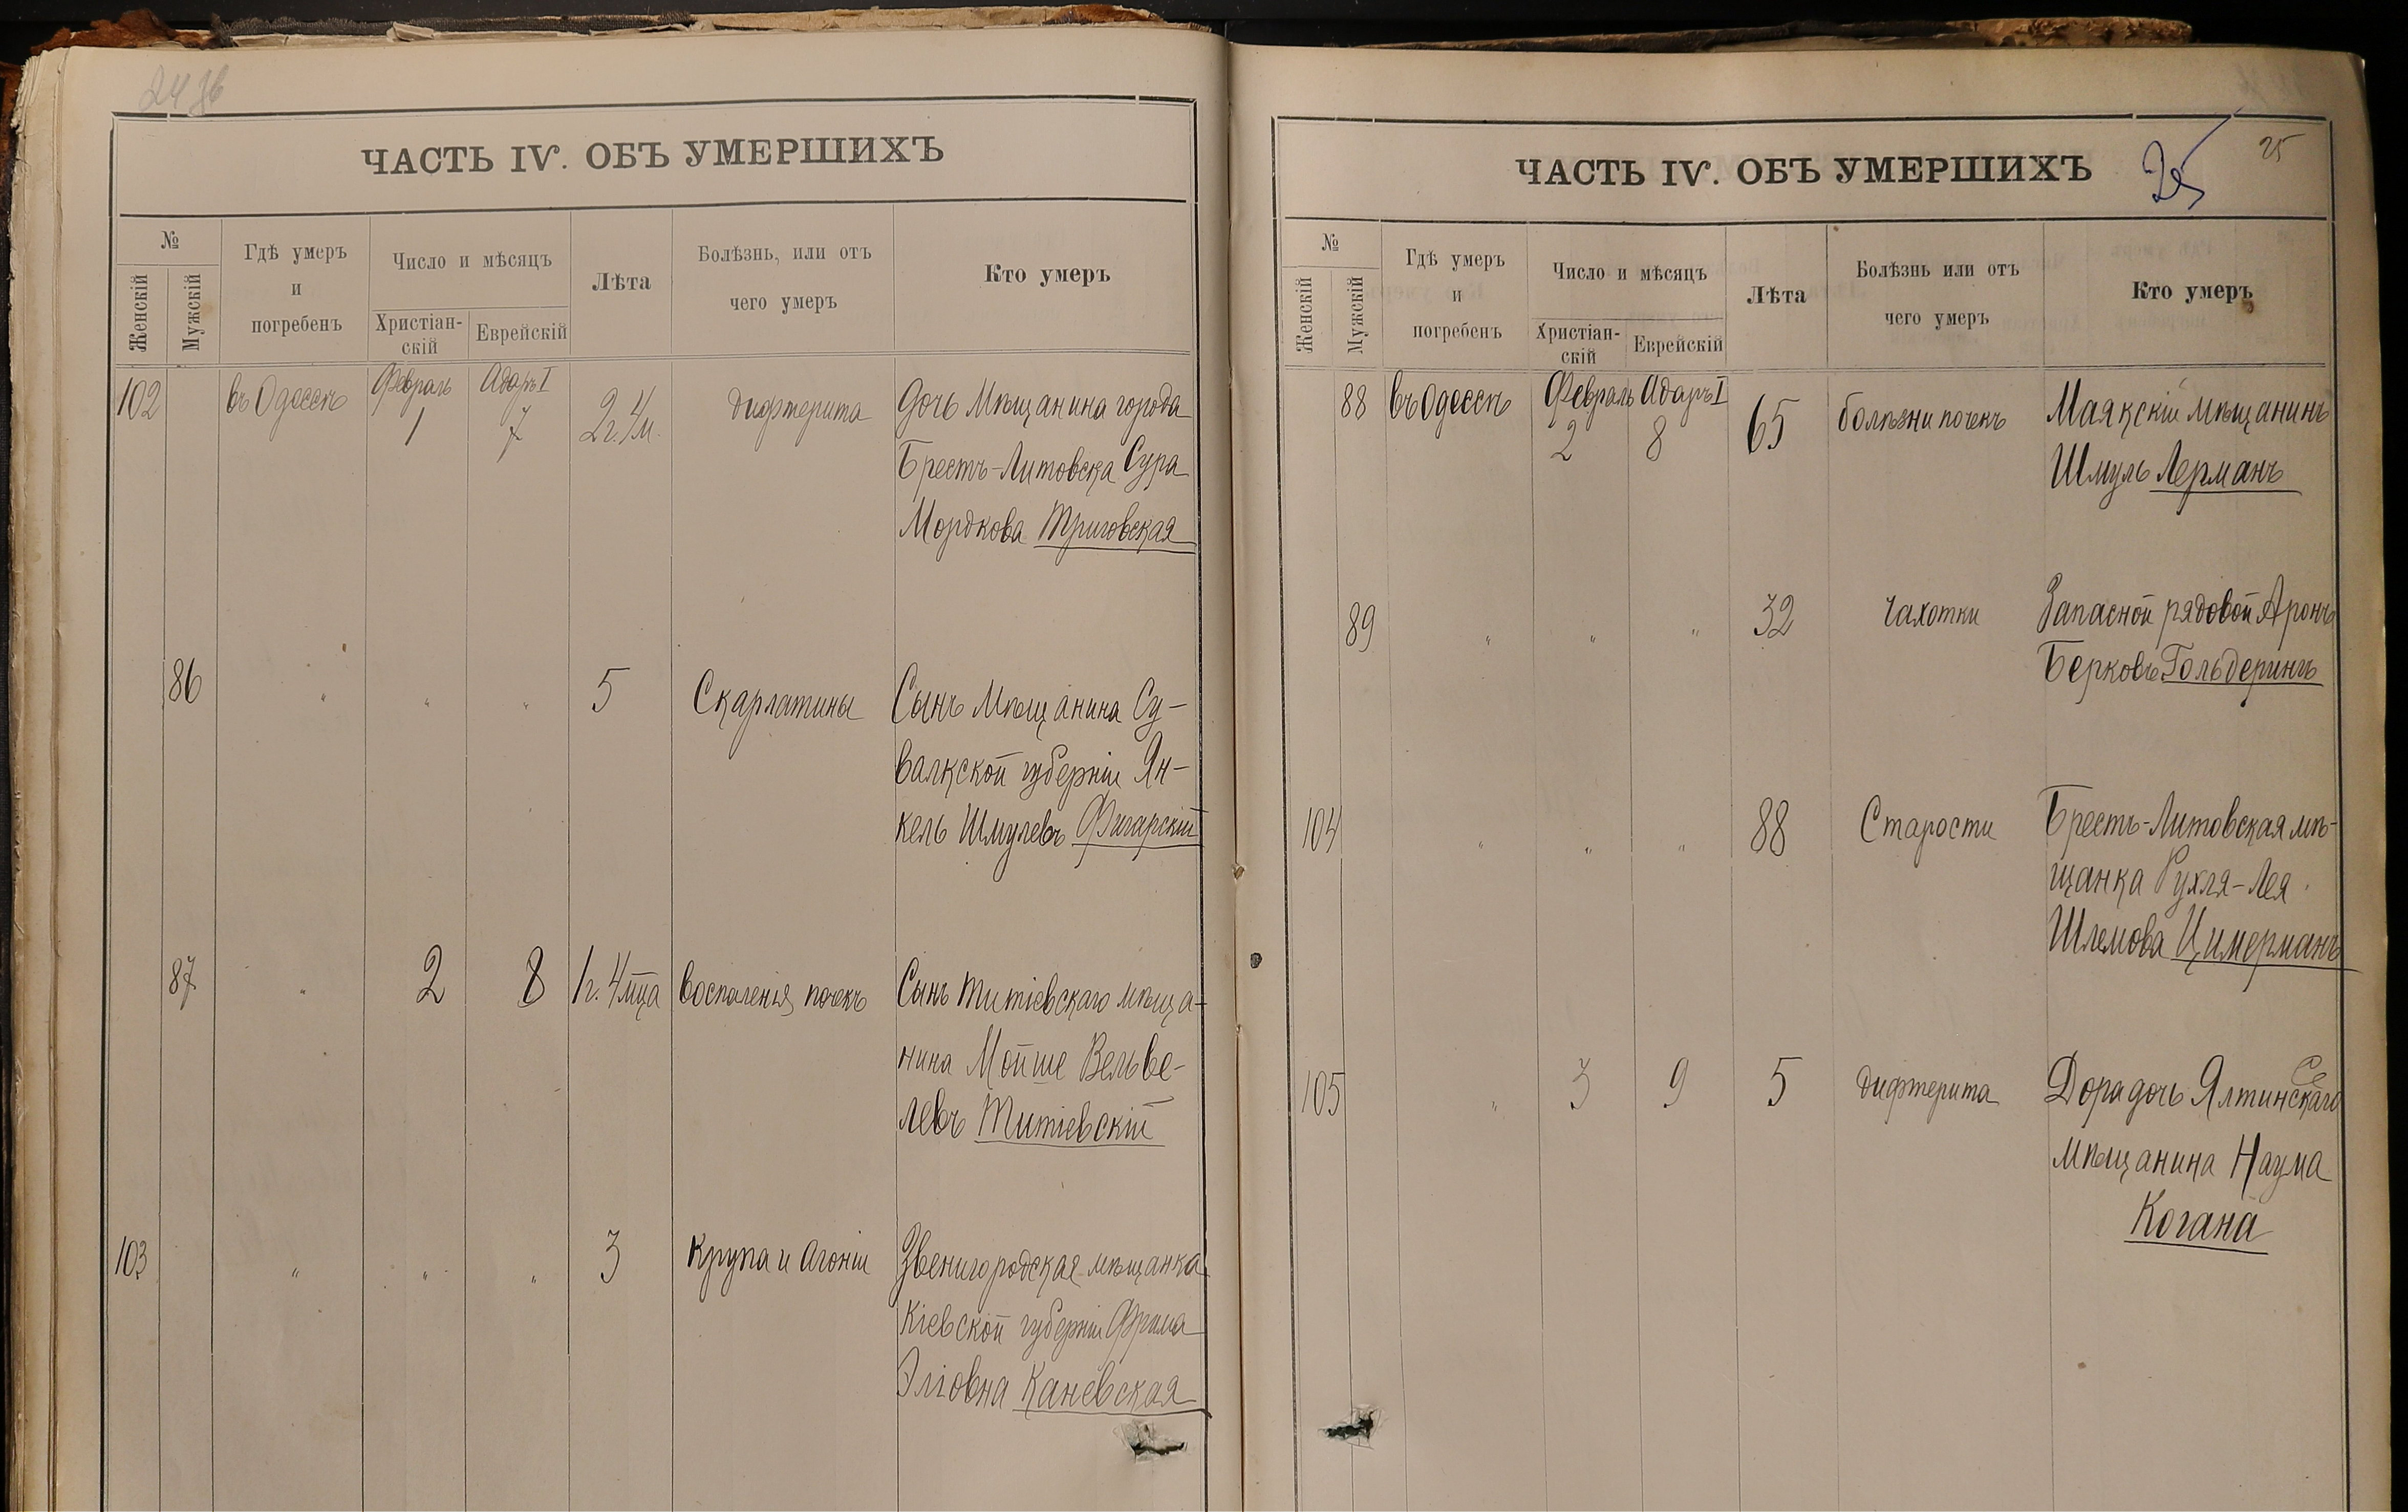 24 об
ЧАСТЬ IV. ОБЪ УМЕРШИХЪ
№
Женскій
Мужскій
Гдѣ умеръ
и
погребенъ
Число и мѣсяцъ
Христіан-
скій
Еврейскій
Лѣта
Болѣзнь, или отъ
чего умеръ
Кто умеръ
102 въ Одессѣ Февраль 1 Адаръ I 7 2 г. 4 м. дифтерита Дочь Мѣщанина города
Брестъ-Литовска Сура
Мордкова Триговская
86 " " " 5 Скарлатины Сынъ Мѣщанина Су-
валкской губерніи Ян-
кель Шмулевъ Фигарскій
87 " 2 8 1 г. 4 мца воспаленія почекъ Сынъ Титіевскаго мѣща-
нина Мойше Вельве-
левъ Титіевскій
103 " " " 3 Крупа и Агоніи Звенигородская мѣщанка
Кіевской губерніи Фрима
Эліовна Каневская
ЧАСТЬ IV. ОБЪ УМЕРШИХЪ
25
25
№
Женскій
Мужскій
Гдѣ умеръ
и
погребенъ
Число и мѣсяцъ
Христіан-
скій
Еврейскій
Лѣта
Болѣзнь или отъ
чего умеръ
Кто умеръ
88 въ Одессѣ Февраль 2 Адаръ I 8 65 болѣзни почекъ Маякскій мѣщанинъ
Шмуль Лерманъ
89 " " " 32 Чахотки Запасной рядовой Аронъ
Берковъ Гольдерингъ
104 " " " 88 Старости Брестъ-Литовская мѣ-
щанка Рухля-Лея
Шлемова Цимерманъ
105 " 3 9 5 дифтерита Дора дочь Ялтинскаго
мѣщанина Наума
Когана